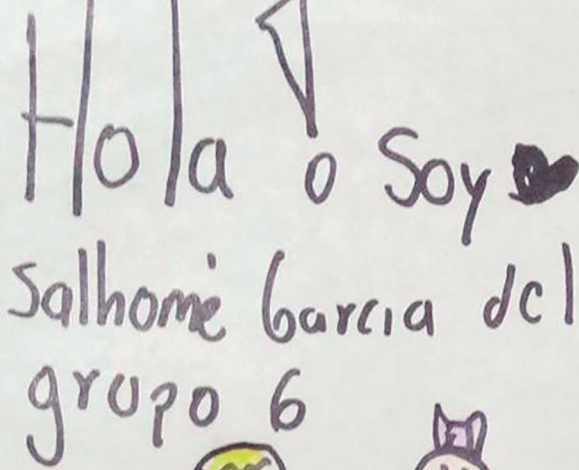 Hola ! Soy
Salhomé Garcia del
grupo 6